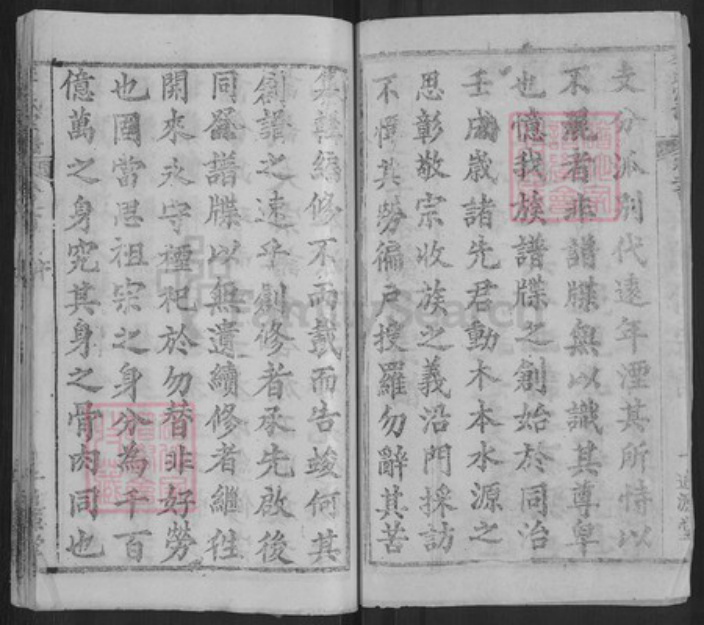 支分派別代遠年湮其所恃以
不混者非譜牒無以識其尊卑
也憶我族譜牒之創始於同治
壬戌歲諸先君動木本水源之
思彰敬宗收族之義沿門採訪
不憚其勞徧戶搜羅勿辭其苦
集韓編修不兩載而告竣何其
創譜之速乎創修者承先啟後
同登譜牒以無遺續修者繼徃
開來永守禋祀於勿替非好勞
也固當思祖宗之身分為千百
億萬之身究其身之骨肉同也
追源堂
FamilySearch